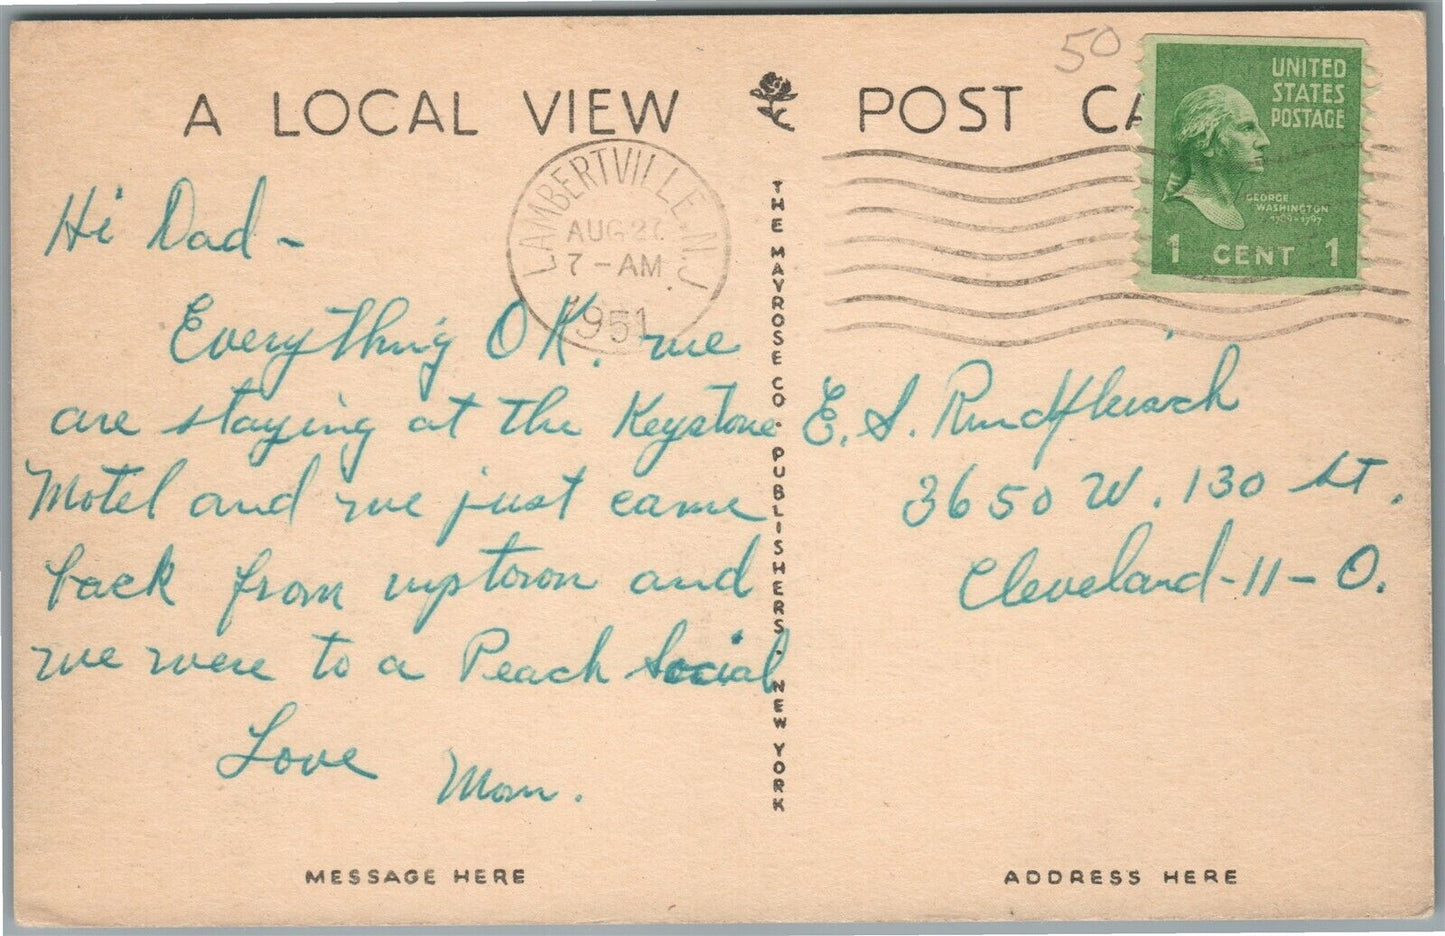 50
A LOCAL VIEW POST CA
UNITED
STATES
POSTAGE
GEORGE
WASHINGTON
1789-1797
1 CENT 1
LAMBERTVILLE. N.J.
AUG 2
7-AM
1951
Hi Dad -
Everything OK. we
are staying at the Keystone
Motel and we just came
back from uptown and
we were to a Peach Social
Love
Mom.
THE MAYROSE CO. PUBLISHERS. NEW YORK
E. S. Rindfleisch
3650 W. 130 St.
Cleveland-11-O.
MESSAGE HERE
ADDRESS HERE